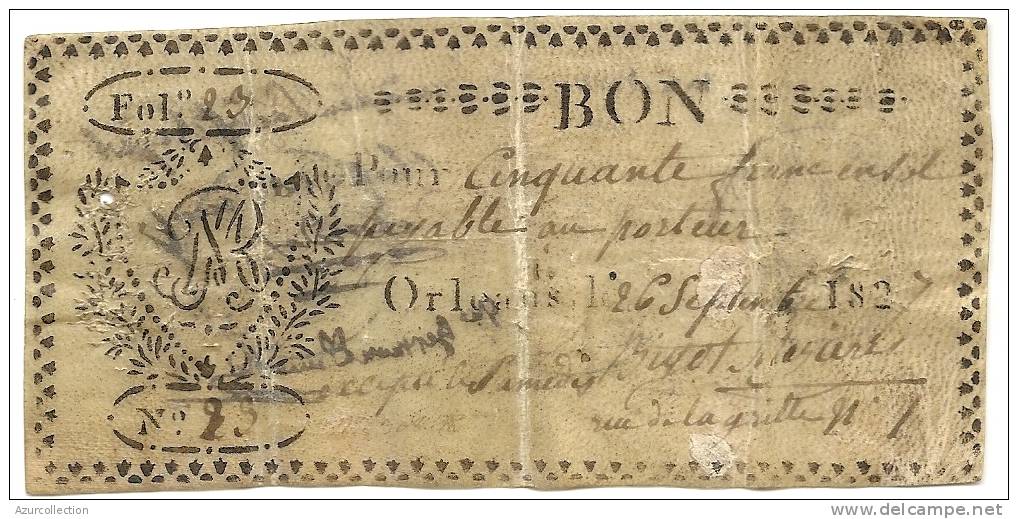 Fol.º 23
BON
Pour Cinquante franc en sol
payable au porteur
Orléans, le 26 Septembre 1827
Bigot
excepté le Samedy
rue de la grille Nº 7
Nº. 23
© Azurcollection
www.delcampe.net